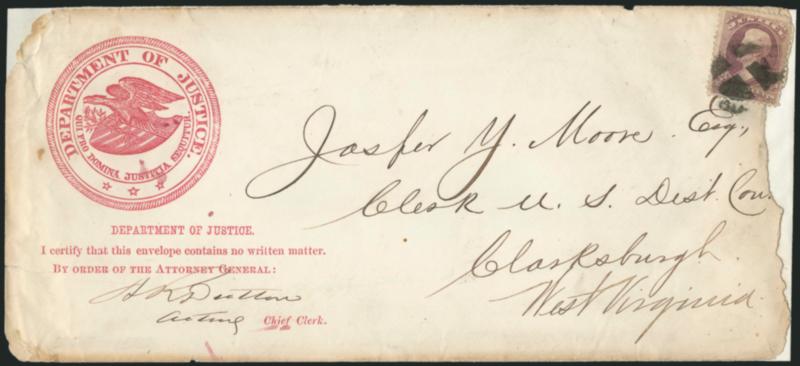 DEPARTMENT OF JUSTICE.
QUI PRO DOMINA JUSTITIA SEQUITUR.
JUSTICE
Jasper Y. Moore Esq,
Clerk U. S. Dist. Cou
Clarksburgh.
West Virginia.
DEPARTMENT OF JUSTICE.
I certify that this envelope contains no written matter.
BY ORDER OF THE ATTORNEY GENERAL:
Acting Chief Clerk.